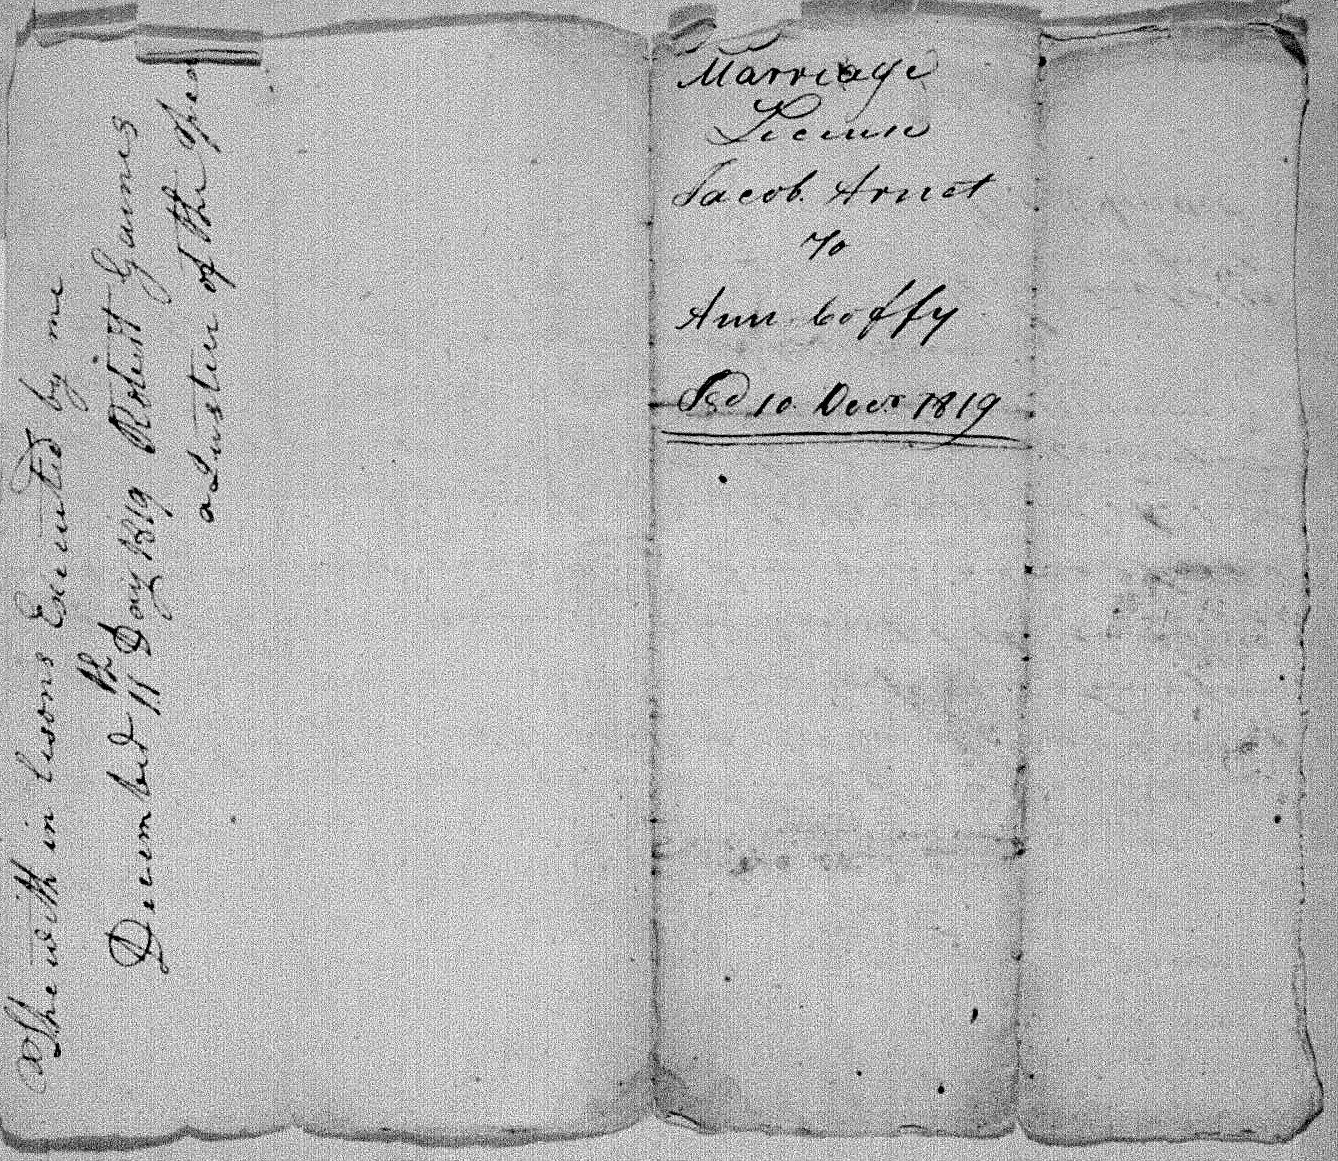 The with in lisons Executed by me
December 11th Day 1819 Robert Gaines
a Justice of the Peac
Marriage
Licenses
Jacob Arnet
To
Ann Coffy
Isd 10 Decr 1819